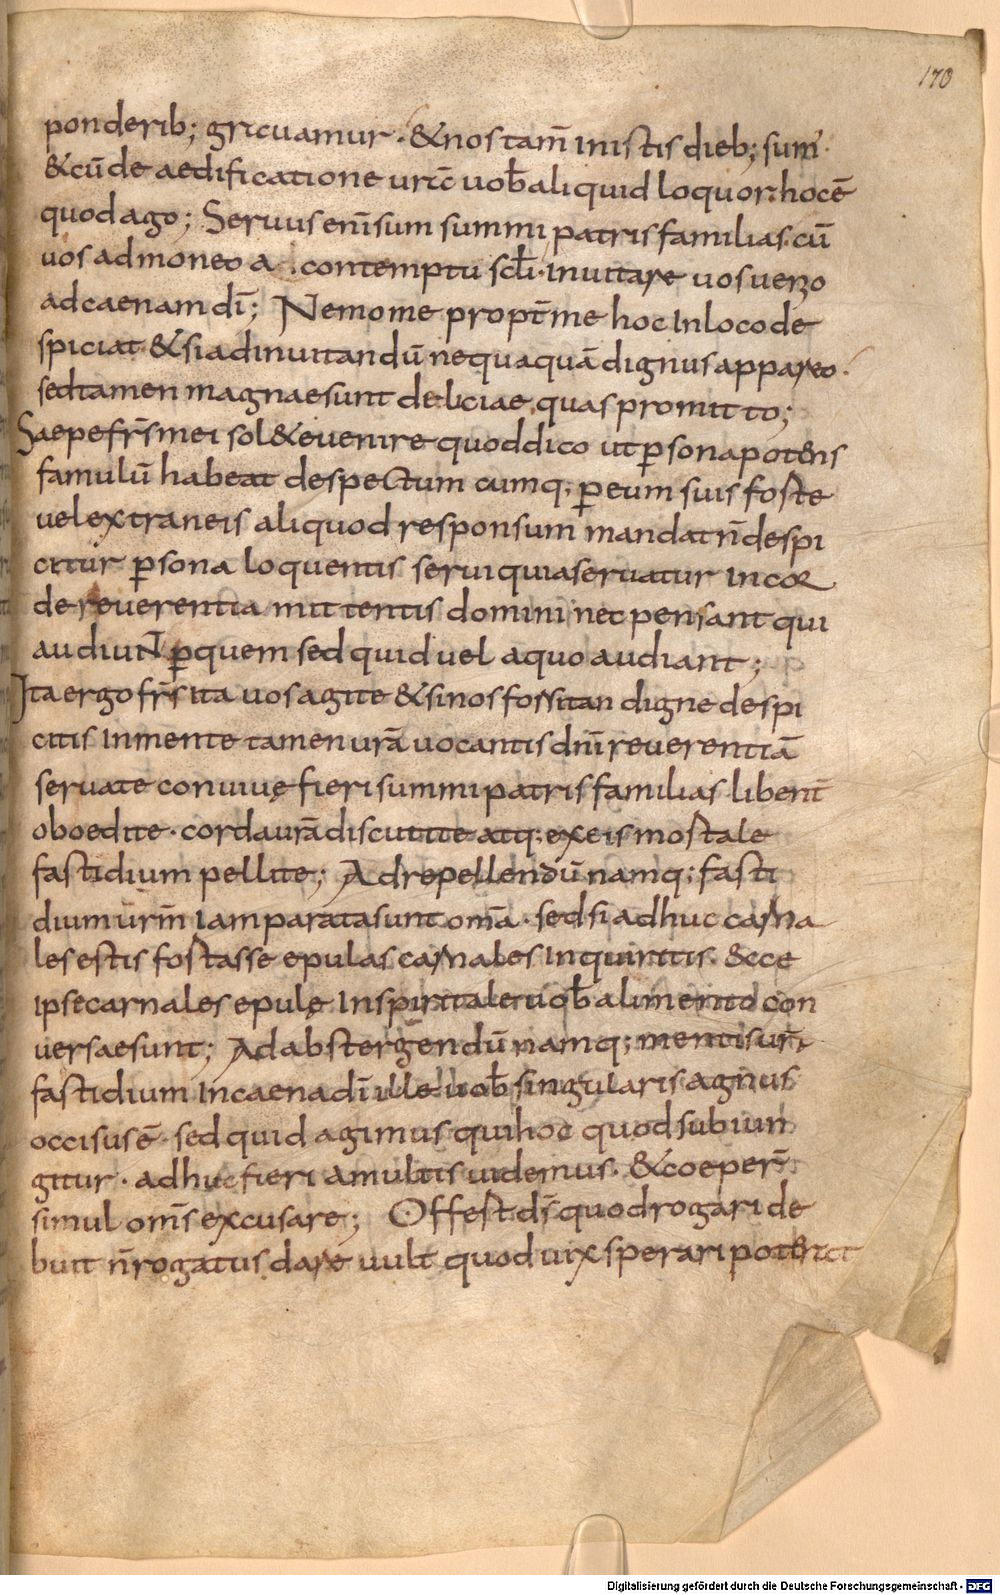 170
ponderib; gracuamur · & nos tam̄ in istis dieb; sum̄
& cū de aedificatione urae uob̄ aliquid loquor · hoc ē
quod ago; Seruus eni sum summi patris familias cū
uos admoneo a contemptu scl̄i · inuitare uos uenio
ad caenam dī; Nemo me propt̄ me hoc in loco de
spiciat & si ad inuitandū nequaquā dignus appareo ·
sed tamen magnae sunt deliciae quas promitto;
Saepe fr̄s mei sol& euenire quod dico ut p̱sona potens
famulū habeat despectum cumq; p̱ eum suis forte
uel extraneis aliquod responsum mandat n̄ despi
citur p̱sona loquentis serui quia seruatur in cor
de reuerentia mittentis domini nec pensant qui
audiunt p̱ quem sed quid uel a quo audiant;
Ita ergo fr̄s ita uos agite & si nos forsitan digne despi
citis in mente tamen urā uocantis dn̄i reuerentiā
seruate conuiuę fieri summi patris familias libent̄
oboedite · corda urā discutite atq; ex eis mortale
fastidium pellite; Ad repellendū namq; fasti
dium ur̄m iam parata sunt om̄a · sed si adhuc carna
les estis fortasse epulas carnales inquiritis · Ecce
ipse carnales epulę in spiritale uob̄ alimento con
uersae sunt; Ad abstergendū namq; mentis ur̄ę
fastidium in caena dī ille uob̄ singularis agnus
occisus ē · sed quid agimus qui hoc quod subiun
gitur · adhuc fieri a multis uidemus · & coeper̄
simul om̄s excusare; Offert d̄s quod rogari de
buit n̄ rogatus dare uult quod uix sperari poterat
Digitalisierung gefördert durch die Deutsche Forschungsgemeinschaft - DFG